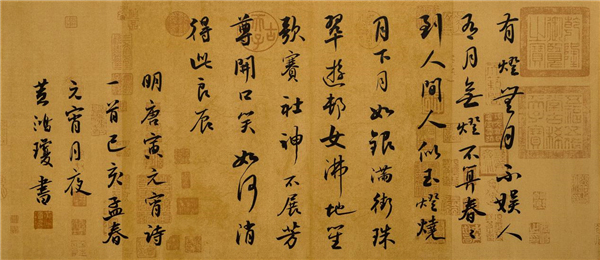 有燈無月不娱人
有月無燈不算春〻
到人間人似玉燈燒
月下月如銀滿街珠
翠遊邨女沸地笙
歌賽社神不展芳
尊開口笑如何消
得此良辰
明唐寅元宵詩
一首己亥孟春
元宵月夜
黄鸿瓊書